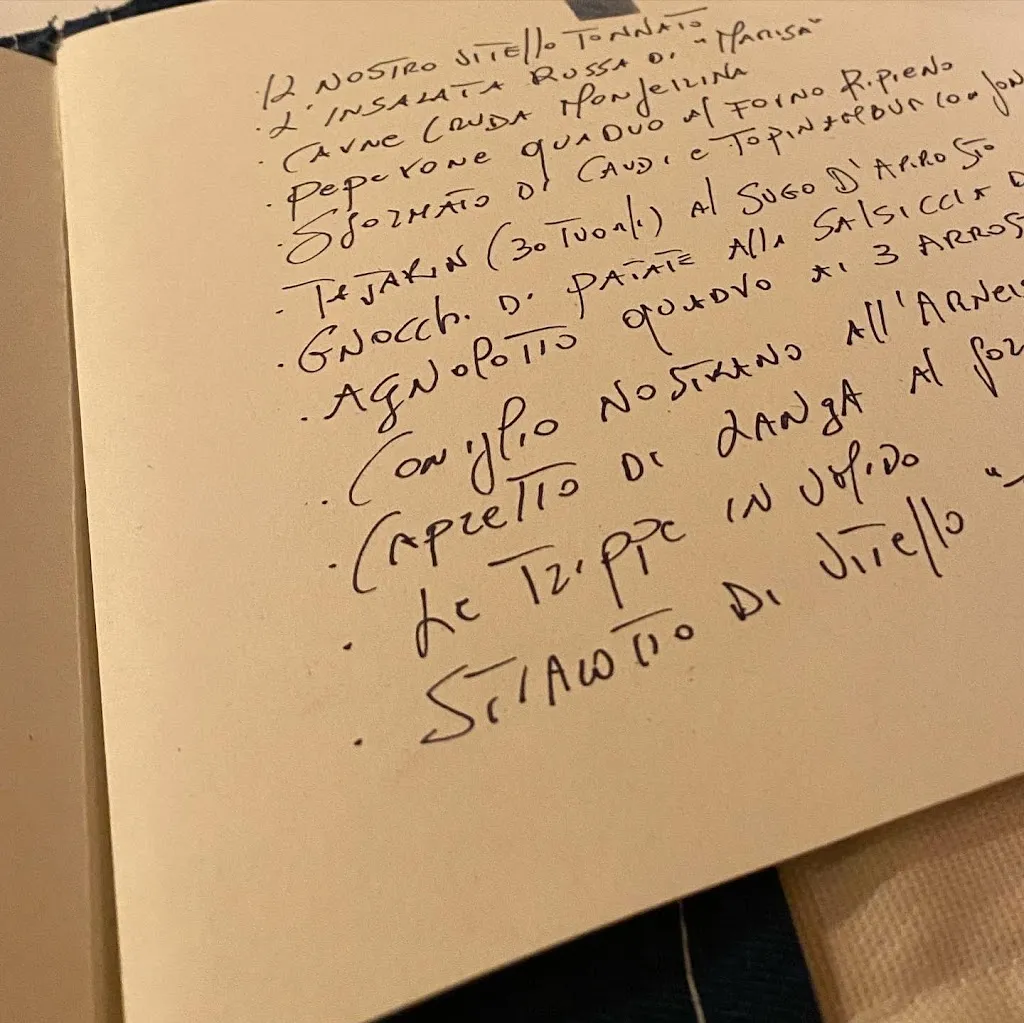 · Il NOSTRO VITEllO TONNATO
· L'INSALATA RUSSA DI "MARISA"
· CARNE CRUDA MONFERRINA
· PEPERONE QUADRO Al FORNO RIPIENO
· SFORMATO DI CARDI e TOPINAMBUR CON FON
· TAJARIN (30 TUORLI) Al SUGO D'ARROSTO
· GNOCCHI DI PATATE AllA SAlSICCIA D
· AGNOLOTTO QUADRO AI 3 ARROST
· CONIGLIO NOSTRANO All'ARNEIS
· CAPRETTO DI LANGA Al FOR
· Le TRIPPE IN UMIDO
· STRACOTTO DI VITEllO "